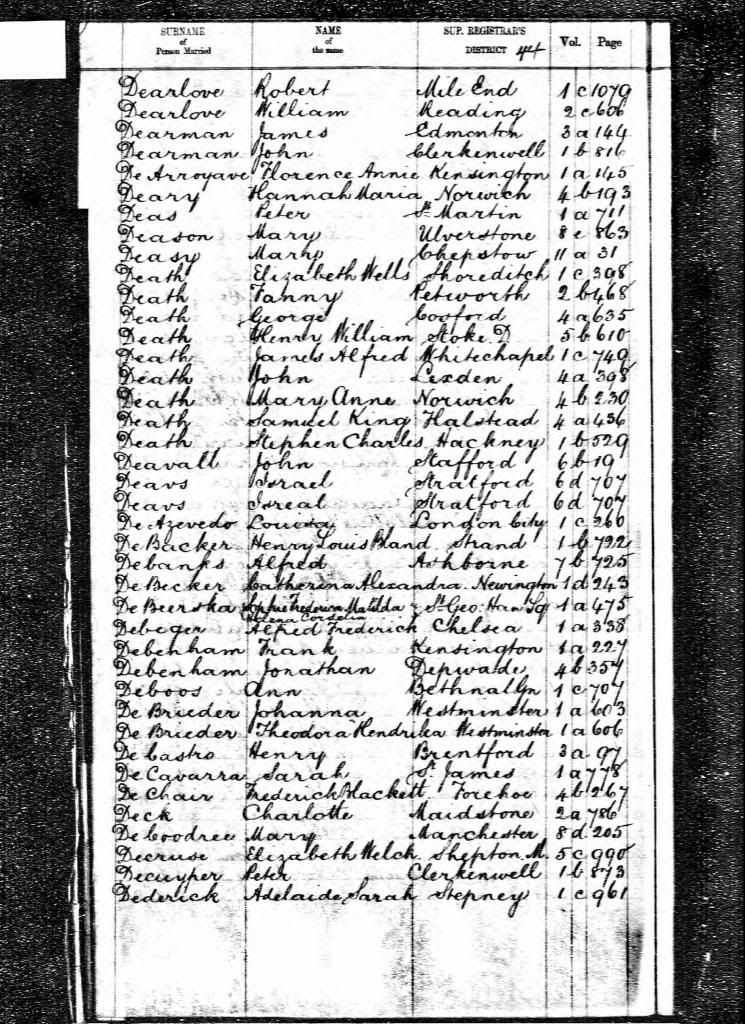 SURNAME of Person Married NAME of the same SUP. REGISTRAR'S DISTRICT 44 Vol. Page
Dearlove Robert Mile End 1 c 1079
Dearlove William Reading 2 c 606
Dearman James Edmonton 3 a 144
Dearman John Clerkenwell 1 b 816
De Arroyave Florence Annie Kensington 1 a 145
Deary Hannah Maria Norwich 4 b 193
Deas Peter St. Martin 1 a 711
Deason Mary Ulverstone 8 e 863
Deasy Mary Chepstow 11 a 31
Death Elizabeth Wells Shoreditch 1 c 398
Death Fanny Petworth 2 b 468
Death George Cosford 4 a 635
Death Henry William Stoke D. 5 b 610
Death James Alfred Whitechapel 1 c 749
Death John Lexden 4 a 398
Death Mary Anne Norwich 4 b 230
Death Samuel King Halstead 4 a 436
Death Stephen Charles Hackney 1 b 529
Deavall John Stafford 6 b 19
Deavs Israel Stratford 6 d 707
Deavs Isreal Stratford 6 d 707
De Azevedo Louisa London City 1 c 260
De Backer Henry Louis Bland Strand 1 b 792
Debanks Alfred Ashborne 7 b 725
De Becker Catherina Alexandra Newington 1 d 243
De Beerska Sophie Frederica Matilda St. Geo. Han Sq 1 a 475
Helena
Debeger Alfred Frederick Chelsea 1 a 338
Debenham Frank Kensington 1 a 227
Debenham Jonathan Depwade 4 b 357
Deboos Ann Bethnal Gn 1 c 707
De Brieder Johanna Westminster 1 a 603
De Brieder Theodora Hendrika Westminster 1 a 606
De Castro Henry Brentford 3 a 97
De Cavarra Sarah St. James 1 a 778
De Chair Frederick Blackett Forehoe 4 b 267
Deck Charlotte Maidstone 2 a 786
De Coodree Mary Manchester 8 d 205
Decruse Elizabeth Welch Shepton M. 5 c 990
Decuyper Peter Clerkenwell 1 b 873
Dederick Adelaide Sarah Stepney 1 c 961